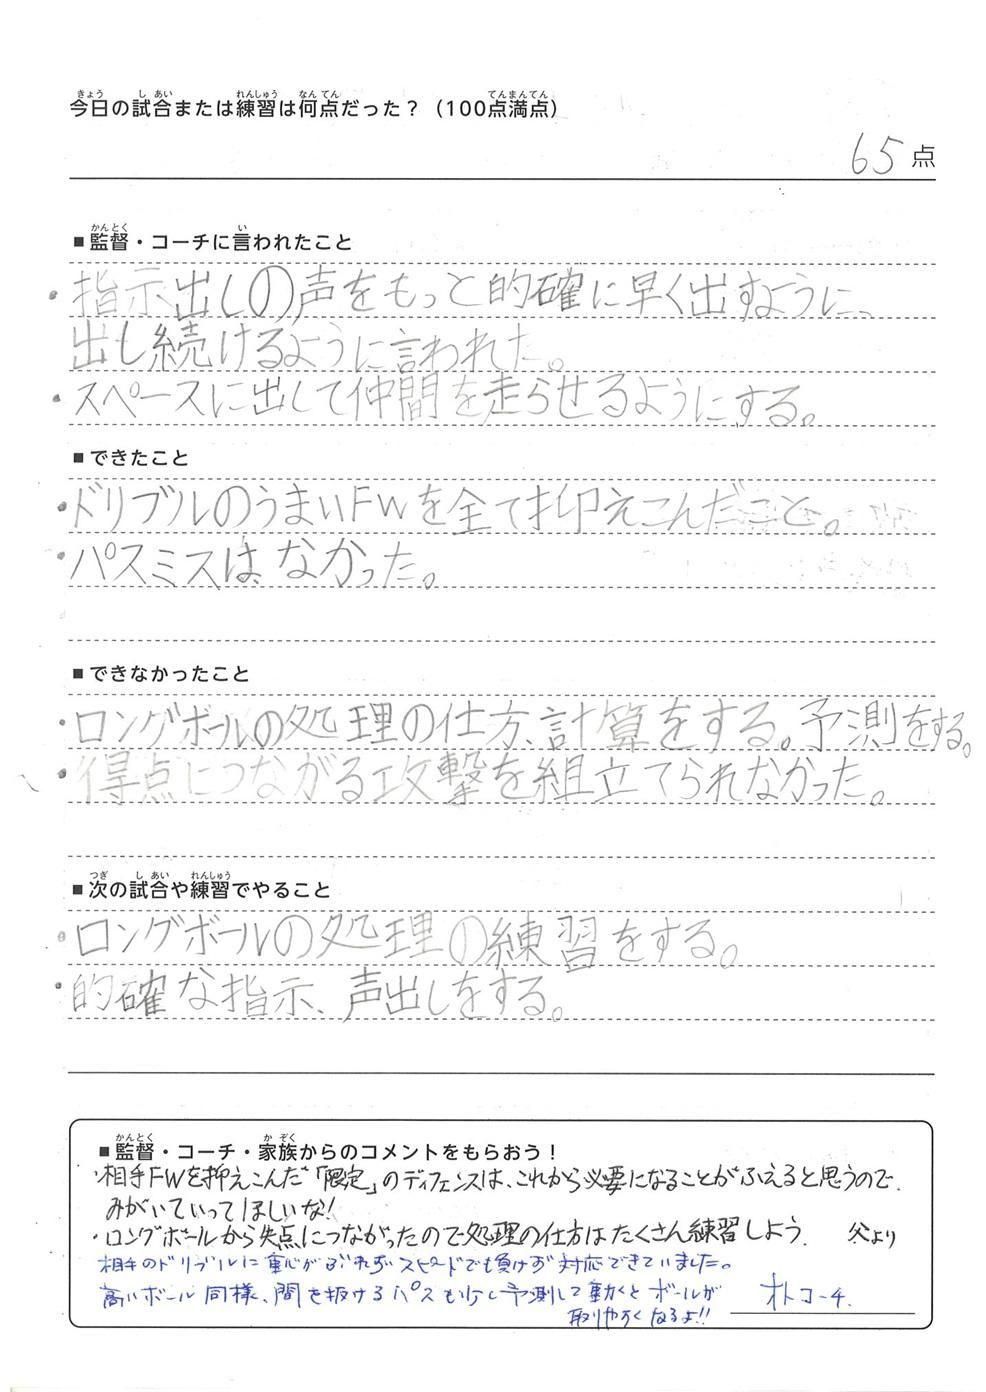 今日の試合または練習は何点だった？（100点満点）
65 点
■監督・コーチに言われたこと
・指示出しの声をもっと的確に早く出すように、
出し続けるように言われた。
・スペースに出して仲間を走らせるようにする。
■できたこと
・ドリブルのうまいFWを全て抑えこんだこと。
・パスミスはなかった。
■できなかったこと
・ロングボールの処理の仕方、計算をする。予測をする。
・得点につながる攻撃を組立てられなかった。
■次の試合や練習でやること
・ロングボールの処理の練習をする。
・的確な指示、声出しをする。
■監督・コーチ・家族からのコメントをもらおう！
・相手FWを抑えこんだ「限定」のディフェンスは、これから必要になることがふえると思うので、
みがいていってほしいな！
・ロングボールから失点につながったので処理の仕方はたくさん練習しよう。 父より
相手のドリブルに重心がぶれずスピードでも負けず対応できていました。
高いボール同様、間を抜けるパスも少し予測して動くとボールが
取りやすくなるよ!! 朴コーチ.